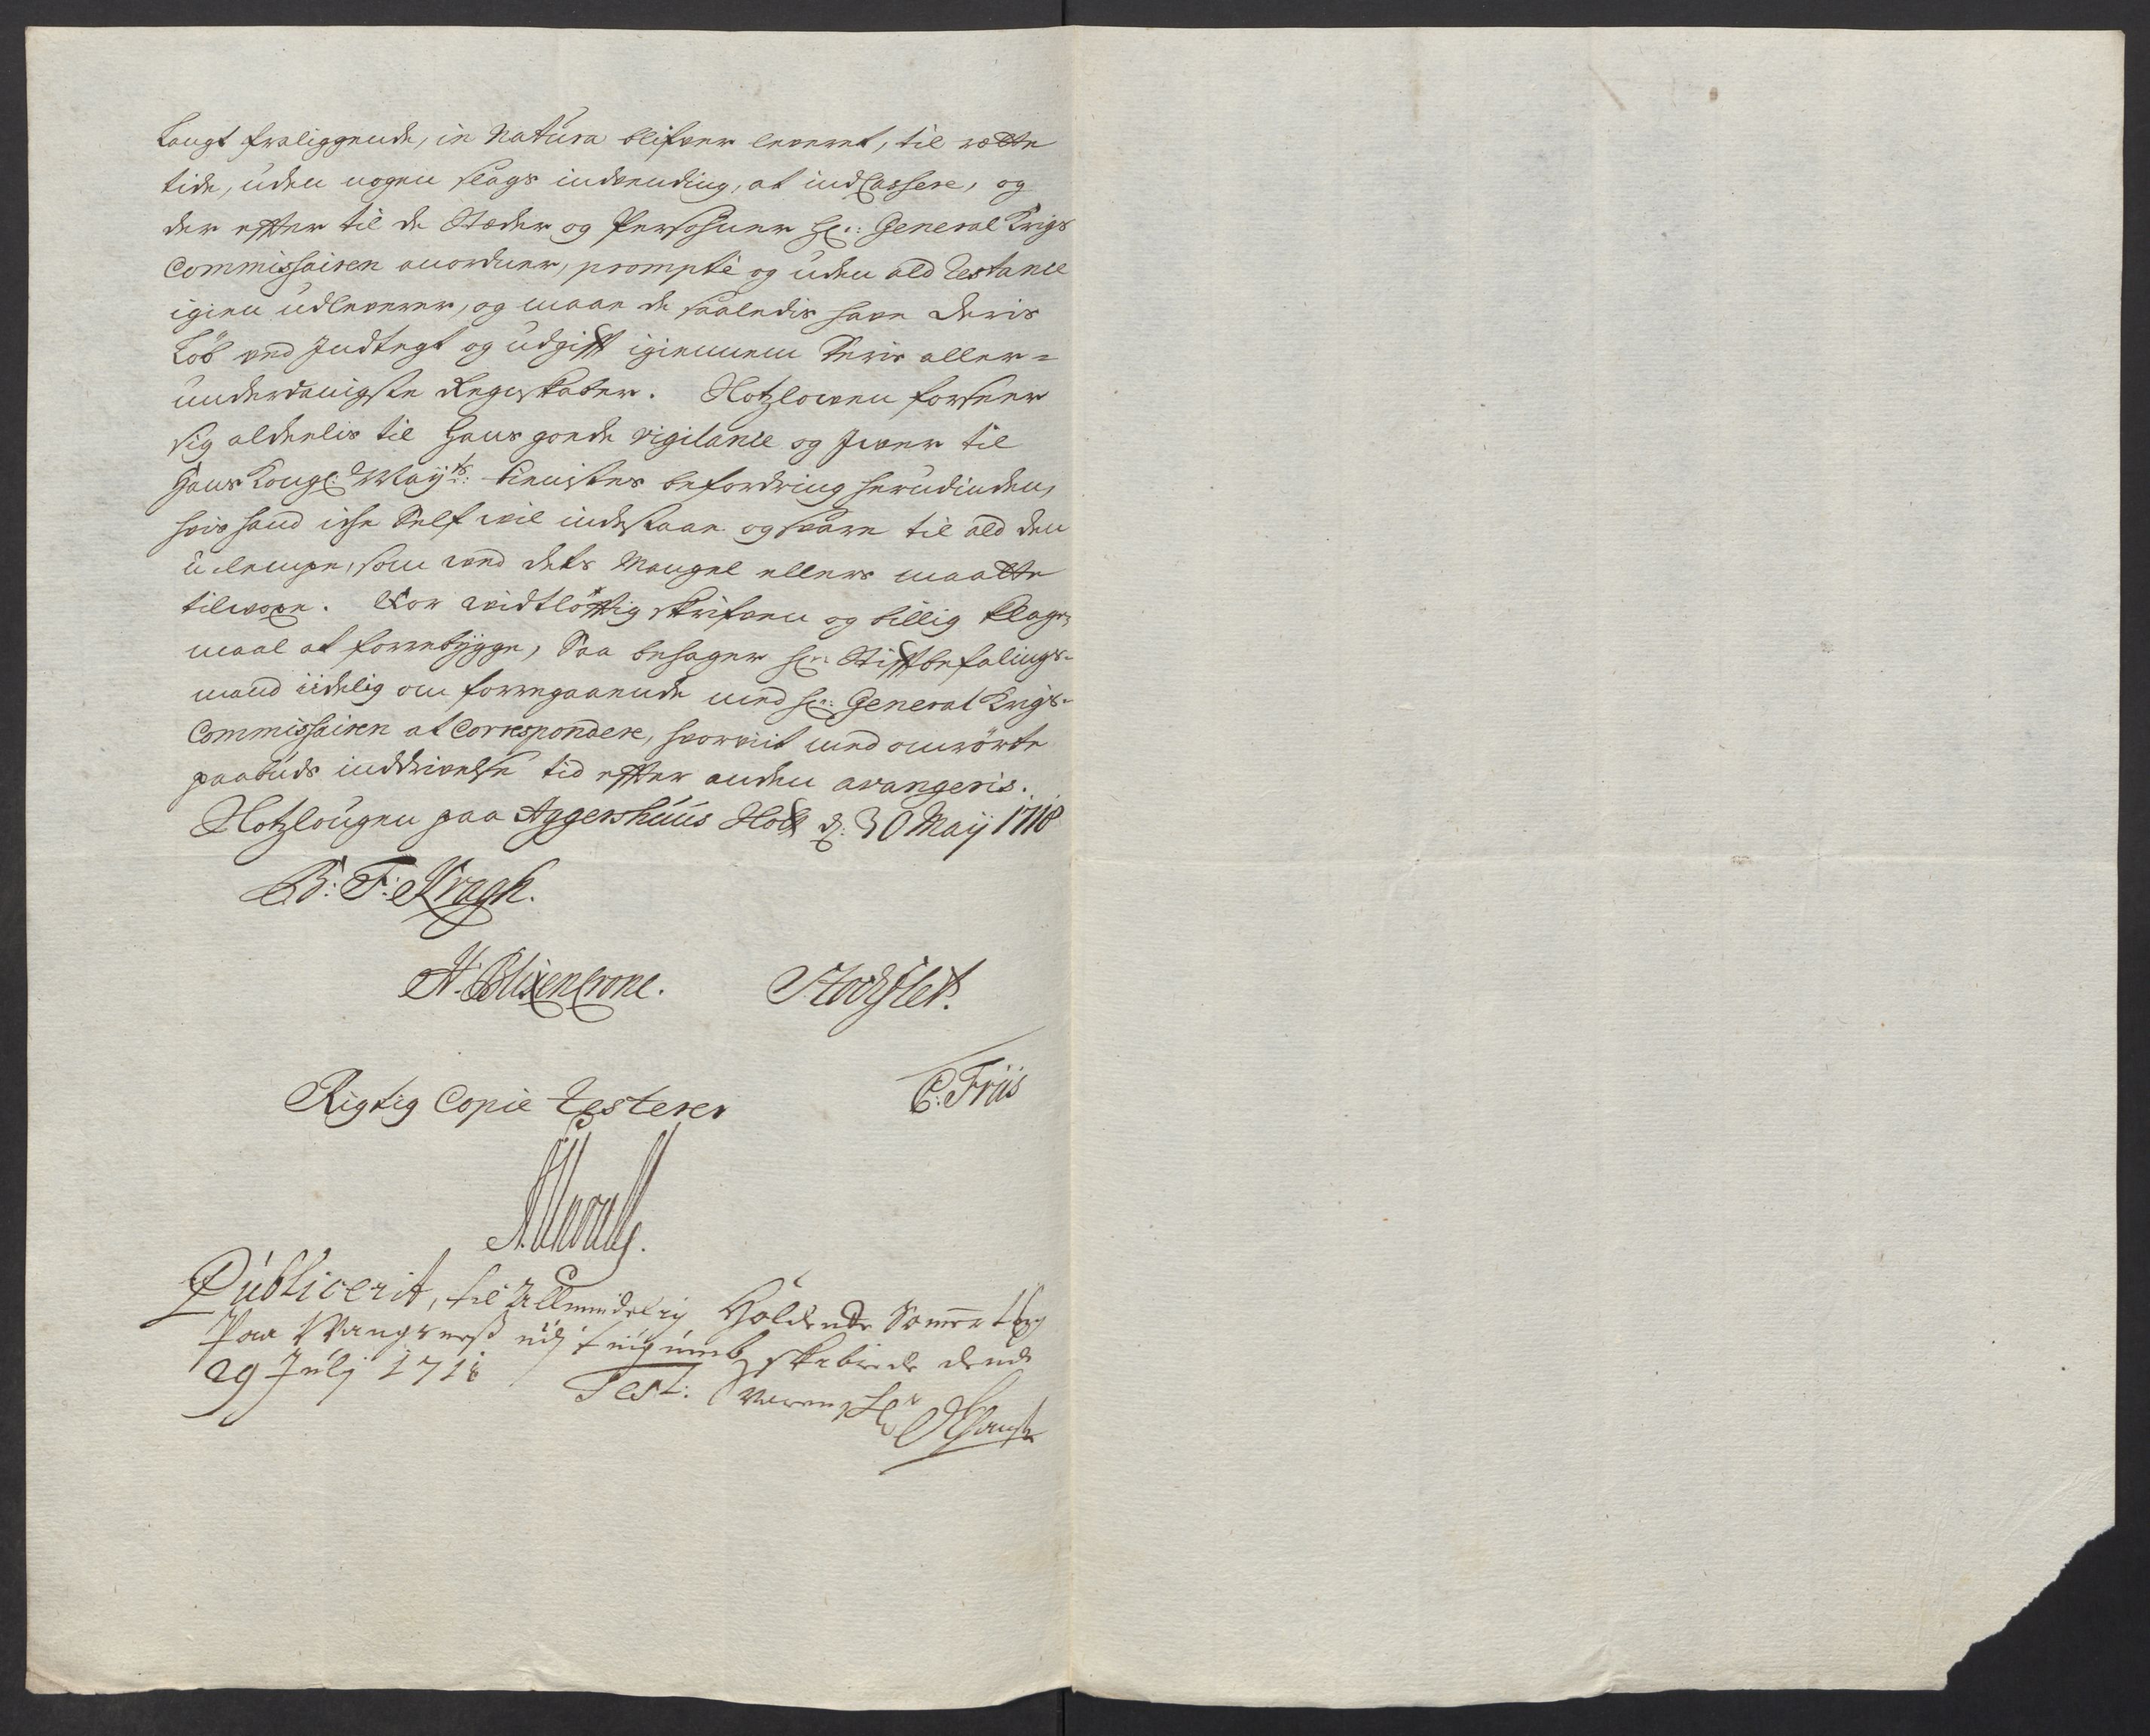 Langt fraliggende, in Natura blifver leveret, til rætte
tide, uden nogen slags indvending, at indCassere, og
der effter til de Stæder og Persohner Hr: General Krigs
Commissairen anordner, promptè og uden ald Restance
igien udleverer, og maae de saaledis have deris
Løb ved Indtegt og udgifft igiennem deris aller=
underdanigste Regnskaber. Slotzloven forseer
sig aldeelis til hans goede vigilance og Iver til
Hans Kongl: May:ts: tienistes befordring herudinden,
hvis hand icke Self vil indestaae og svare til ald den
u-lempe, som ved dets Mangel ellers maatte
tilvoxe. For vidtløfftig skrifven og billig Klage-
maal at forrebygge, Saa behager Hr: Stifftbefalings-
mand iidelig om forregaaende med Hr: General Krigs-
Commissairen at Correspondere, hvorviit med omrørte
paabuds inddrivelse tid effter anden avangeris.
Slotzlougen paa Aggershuus Slott d: 30 Maij 1718
B: F: Kragh.
H. BlixenCrone. Stochflet.
Rigtig Copie Testerer C: Friis
Publicerit, til Allmindelig Holdende Sommerting
Paa Wangsneß skibrede dend
29 Julj 1718 Test: